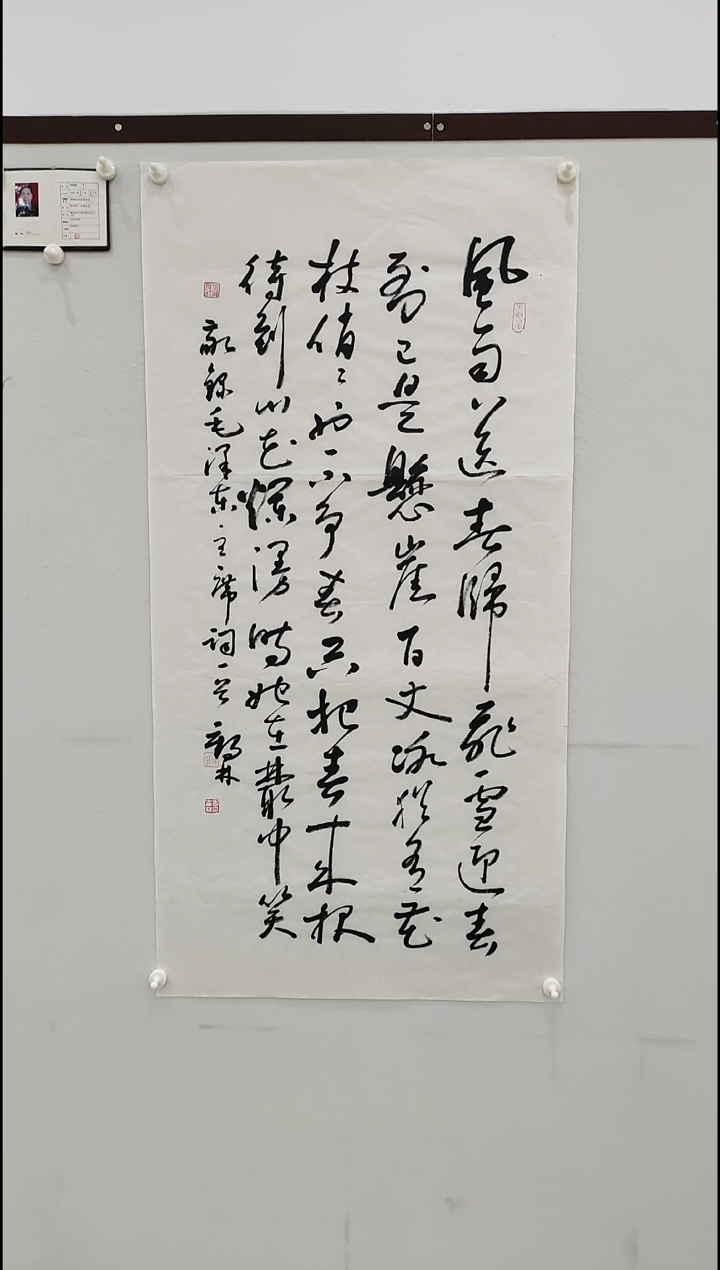 風雨送春歸飛雪迎春
到已是懸崖百丈冰猶有花
枝俏〻也不争春只把春来报
待到山花爛漫時她在叢中笑
敬錄毛澤东主席詞一首